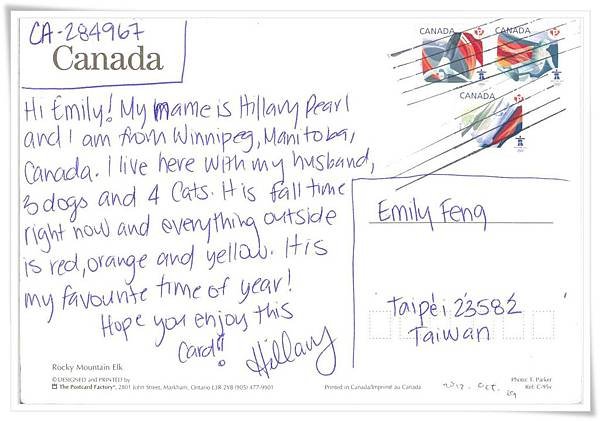 CA-284967
Canada
Hi Emily! My name is Hillary Pearl
and I am from Winnipeg, Manitoba,
Canada. I live here with my husband,
3 dogs and 4 cats. It is fall time
right now and everything outside
is red, orange and yellow. It is
my favourite time of year!
Hope you enjoy this
Card!!
Hillary
CANADA
CANADA
CANADA
Emily Feng
Taipei 23582
Taiwan
Rocky Mountain Elk
© DESIGNED and PRINTED by
The Postcard Factory®, 2801 John Street, Markham, Ontario L3R 2Y8 (905) 477-9901
Printed in Canada/Imprimé au Canada
Photo: T. Parker
Oct. 29